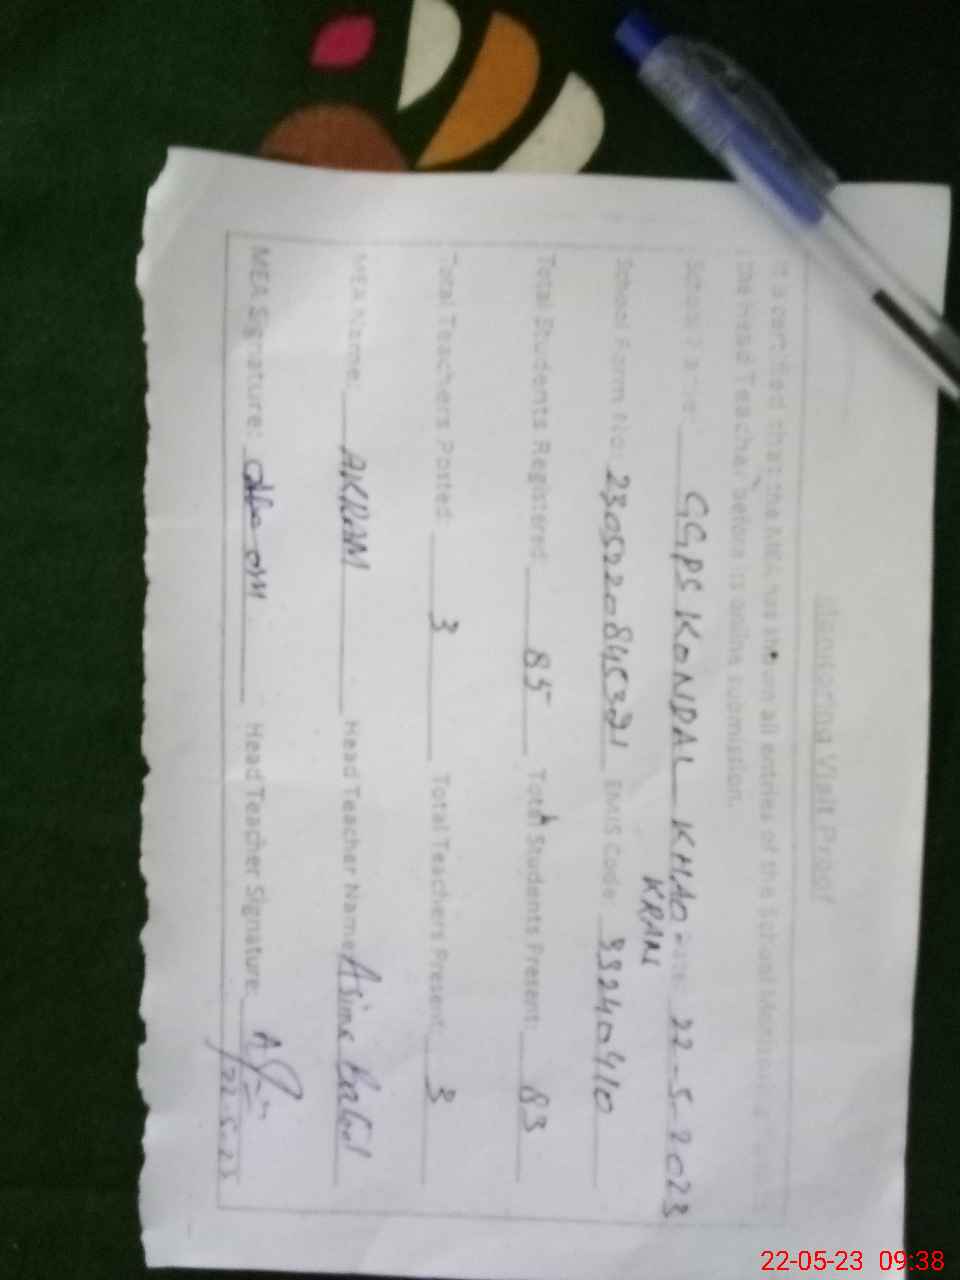 Monitoring Visit Proof
It is certified that the MEA has shown all entries of the School Monitoring
the Head Teacher before its online submission.
School Name: GGPS KONDAL KHAO Date: 22-5-2023
KRANI
School Form No: EMIS Code: 33240410
Total Students Registered: 85 Total Students Present: 83
Total Teachers Posted: 3 Total Teachers Present: 3
MEA Name: AKRAM Head Teacher Name: Asima Batool
MEA Signature: Head Teacher Signature:
22.5.23
22-05-23 09:38